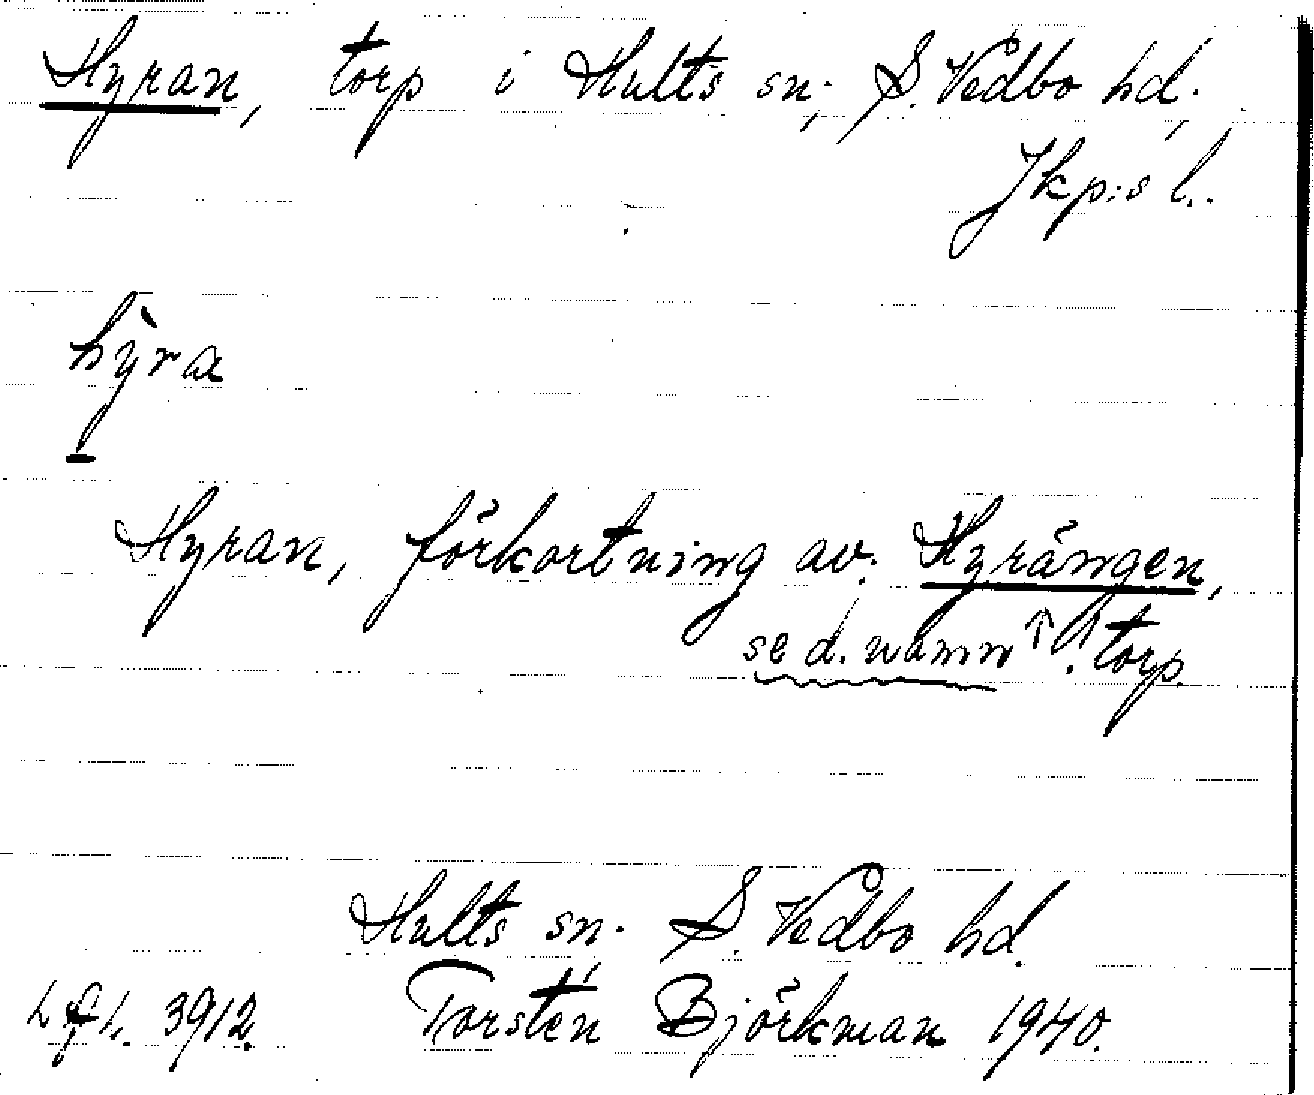 Hyran, torp i Hults sn., S. Vedbo hd.,
Jkp:s l..
hỳra
Hyran, förkortning av: Hyrängen,
se d. namn ↑! torp.
Hults sn. S. Vedbo hd.
3912. Torsten Björkman 1940.